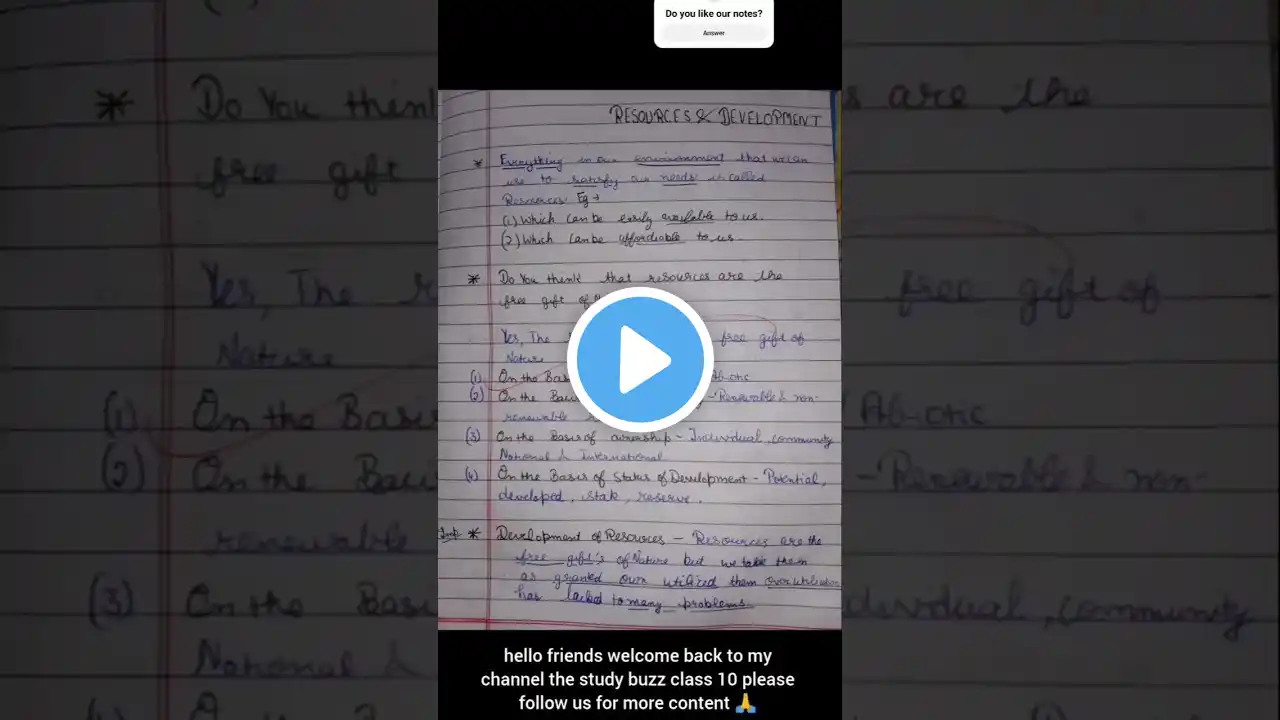 Do you like our notes?
Answer
RESOURCES & DEVELOPMENT
* Everything in our environment that we can
use to satisfy our needs is called
Resources. Eg →
(1) Which can be easily available to us.
(2) Which can be affordable to us.
* Do You think that resources are the
free gift of
Yes, The free gift of
Nature
(1) On the Bas Abiotic
(2) On the Basi - Renewable & non-
renewable
(3) On the Basis of ownership - Individual, community
National & International
(4) On the Basis of Status of Development - Potential,
developed, stok, reserve.
Imp * Development of Resources - Resources are the
free gift's of Nature but we take them
as granted over utilized them over utilization
has lacked to many problems.
hello friends welcome back to my
channel the study buzz class 10 please
follow us for more content 🙏